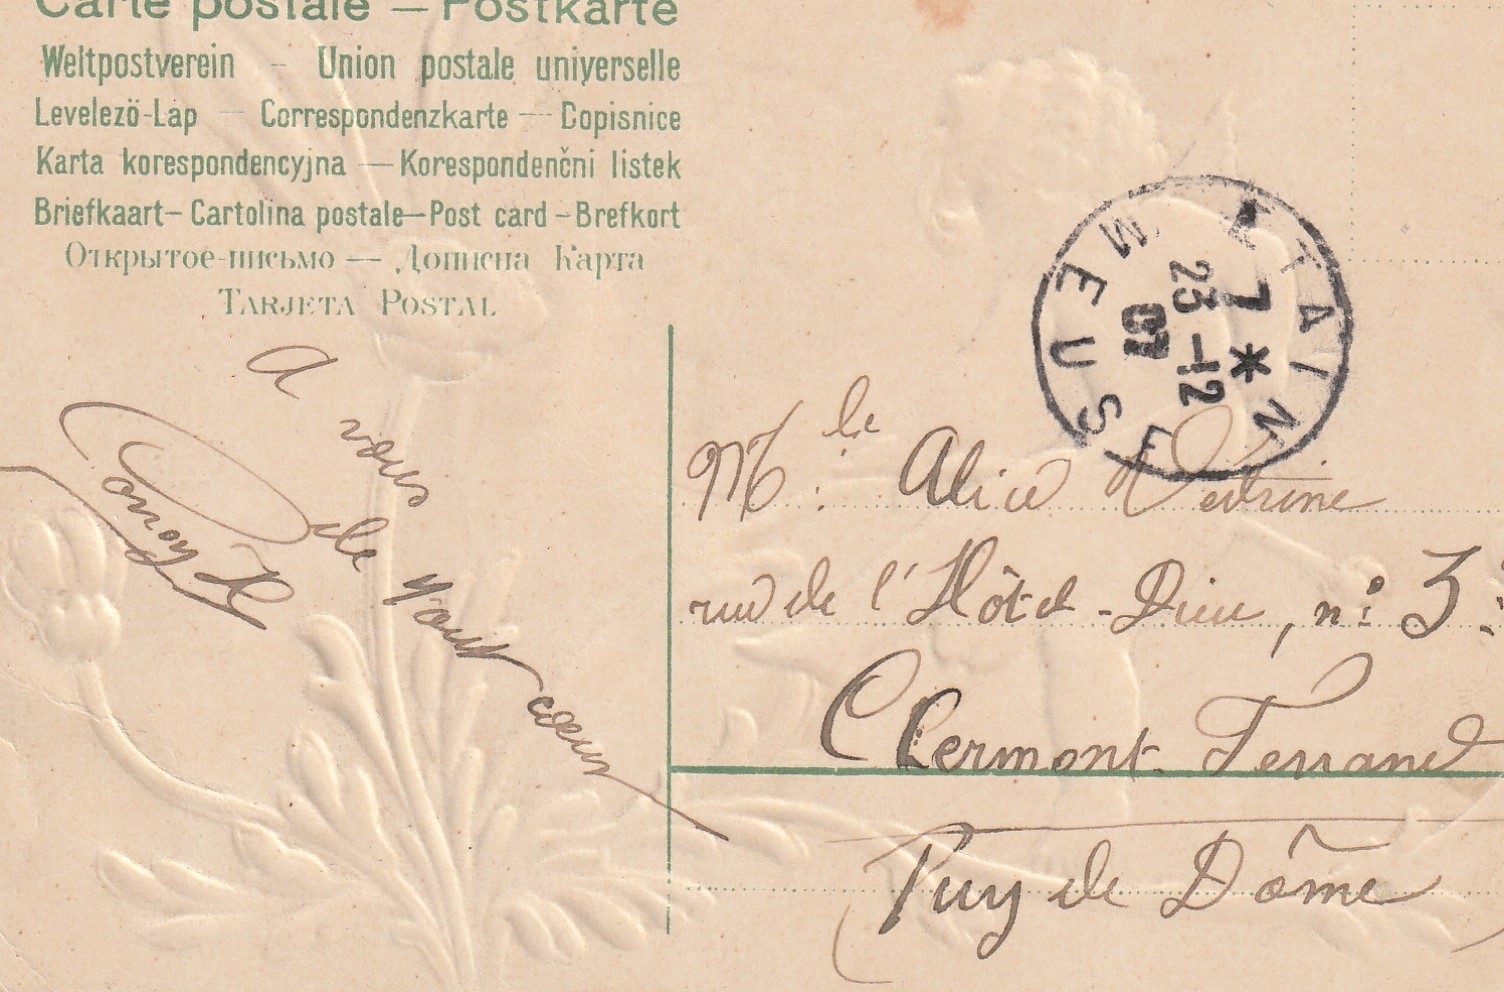 Carte postale — Postkarte
Weltpostverein – Union postale universelle
Levelező-Lap — Correspondenzkarte — Dopisnice
Karta korespondencyjna — Korespondenčni listek
Briefkaart – Cartolina postale — Post card – Brefkort
Открытое-письмо — Дописна Карта
TARJETA POSTAL
ETAIN
7 *
23 - 12
07
MEUSE
A vous
de tout cœur
Mlle. Alice Vedrine
rue de l'Hôtel-Dieu, n: 3
Clermont-Ferrand
Puy de Dôme